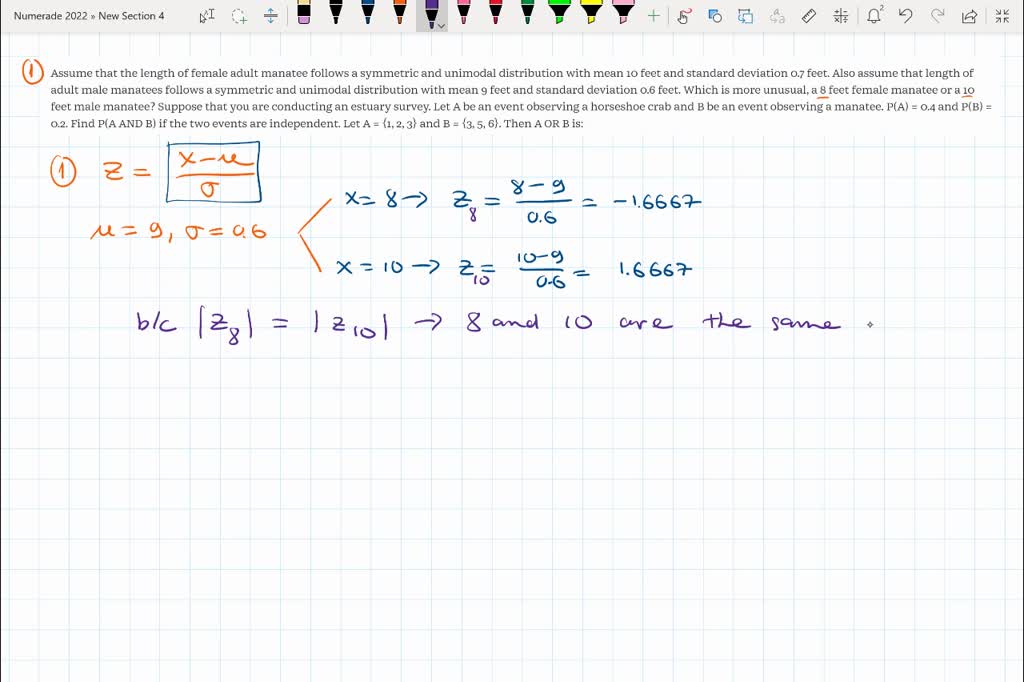 Numerade 2022 » New Section 4
2
① Assume that the length of female adult manatee follows a symmetric and unimodal distribution with mean 10 feet and standard deviation 0.7 feet. Also assume that length of
adult male manatees follows a symmetric and unimodal distribution with mean 9 feet and standard deviation 0.6 feet. Which is more unusual, a 8 feet female manatee or a 10
feet male manatee? Suppose that you are conducting an estuary survey. Let A be an event observing a horseshoe crab and B be an event observing a manatee. P(A) = 0.4 and P(B) =
0.2. Find P(A AND B) if the two events are independent. Let A = {1, 2, 3} and B = {3, 5, 6}. Then A OR B is:
① z = (x-μ)/σ
x = 8 → z₈ = (8-9)/0.6 = -1.6667
μ = 9, σ = 0.6
x = 10 → z₁₀ = (10-9)/0.6 = 1.6667
b/c |z₈| = |z₁₀| → 8 and 10 are the same